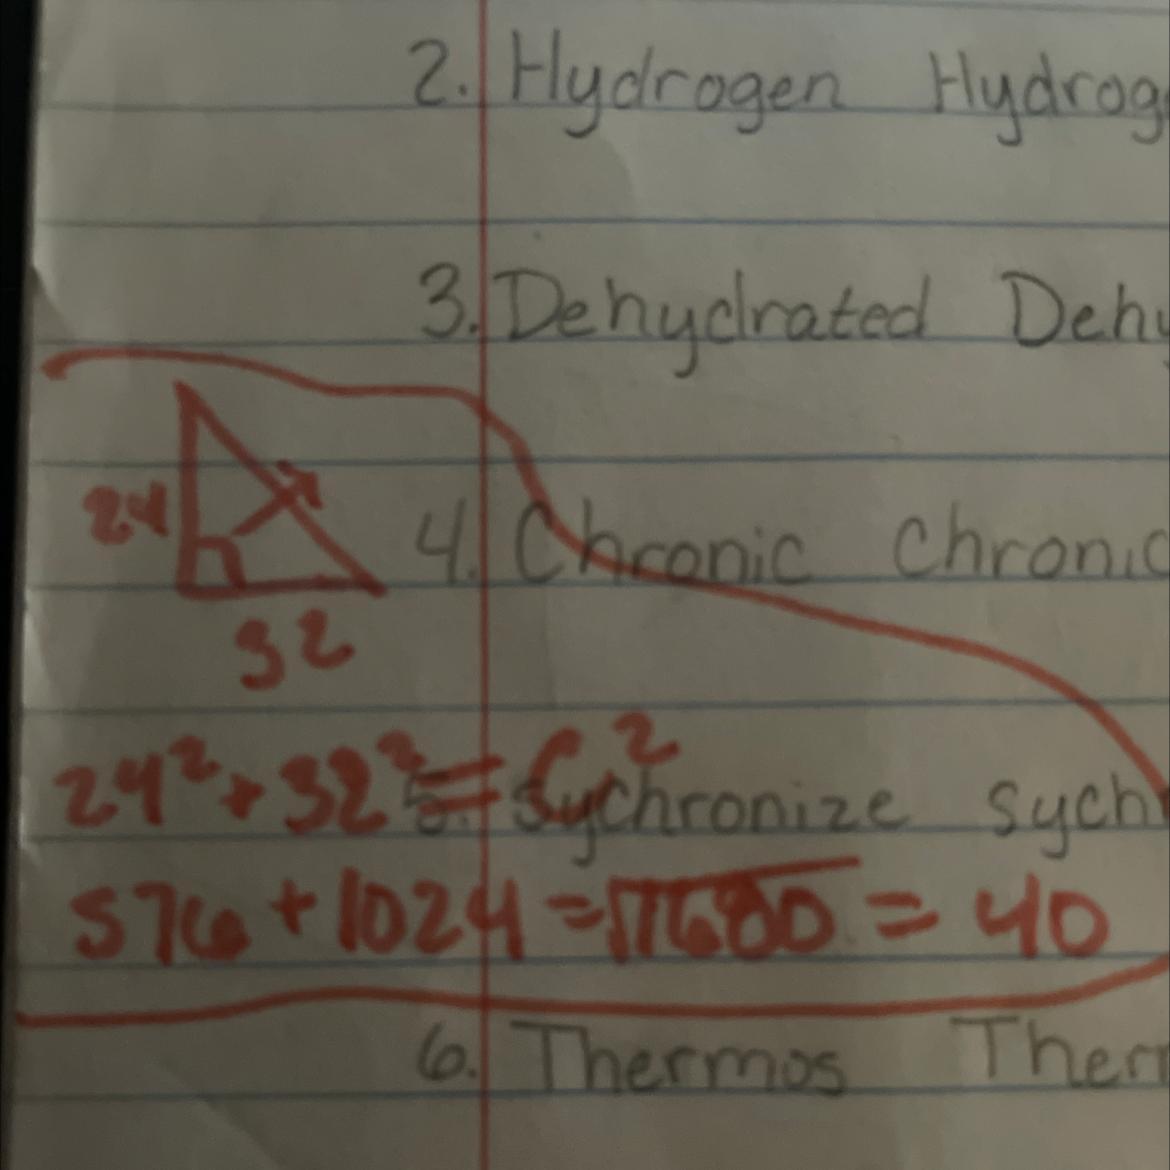 2. Hydrogen Hydrog
3. Dehydrated Dehy
24
4. Chronic Chronic
32
24² + 32² = C²
5. sychronize sych
576 + 1024 = √1600 = 40
6. Thermos Ther